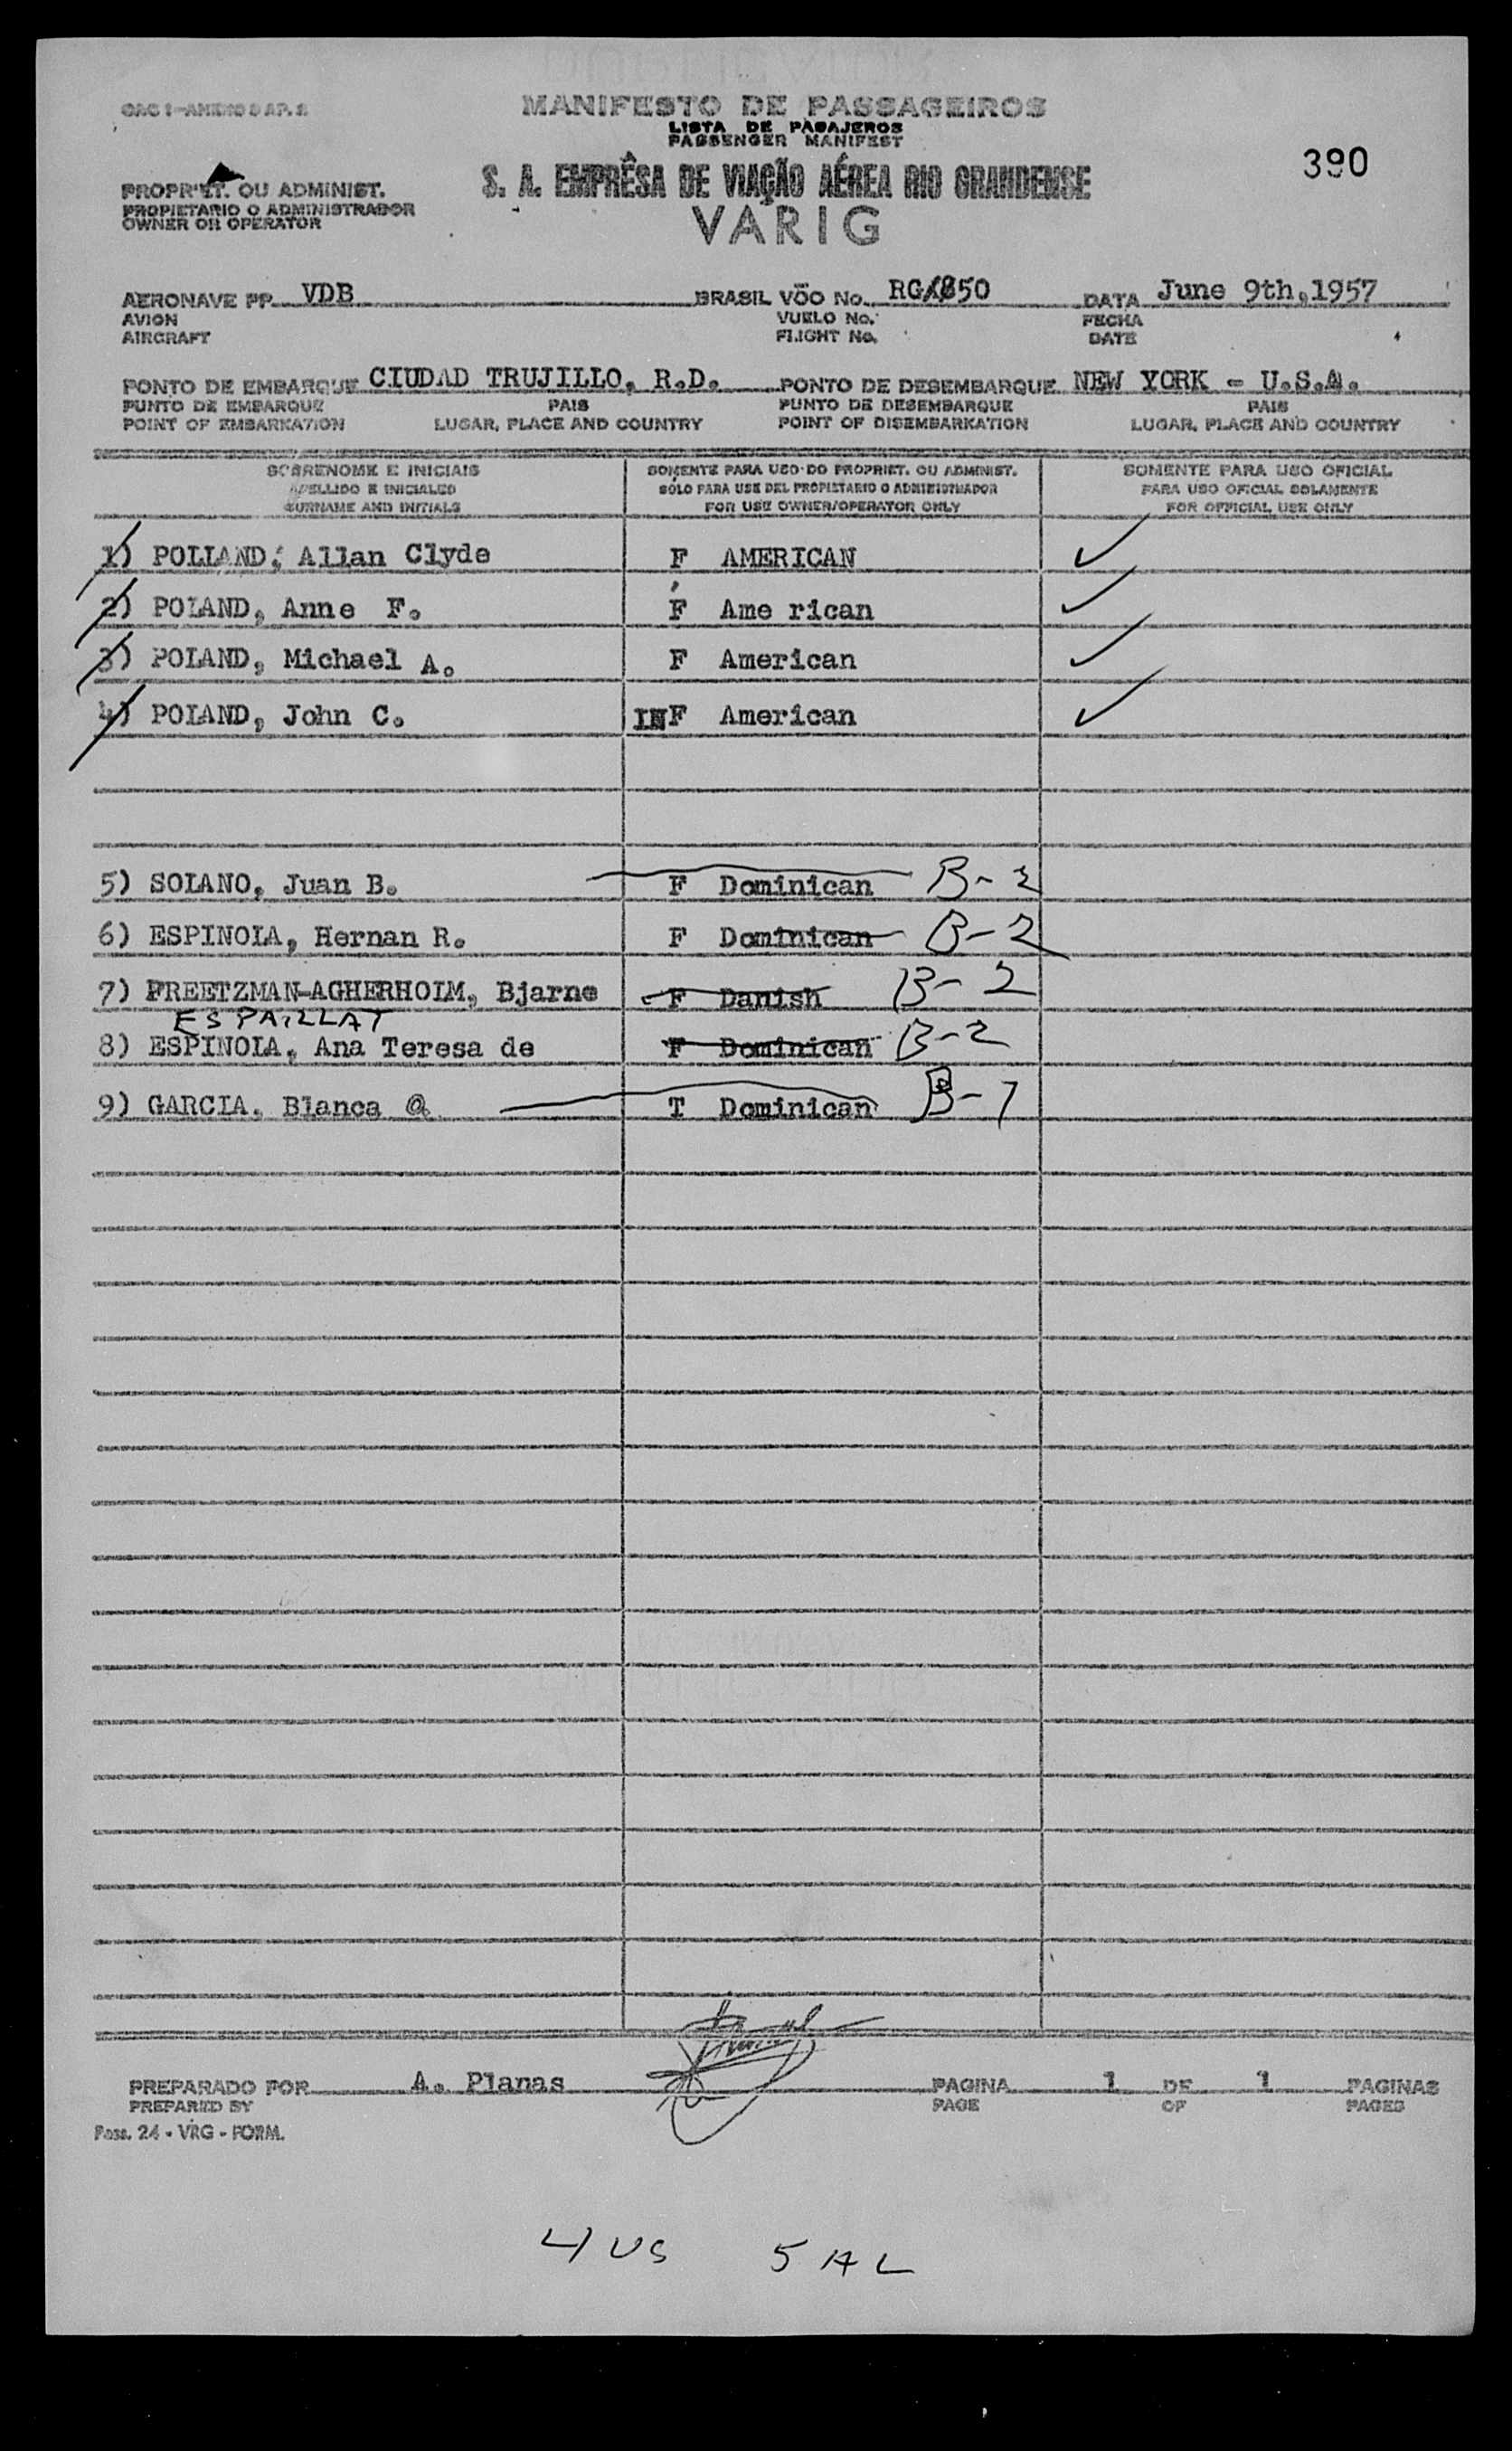 OAC 1-ANEXO 9 AP. 2
MANIFESTO DE PASSAGEIROS
LISTA DE PASAJEROS
PASSENGER MANIFEST
390
PROPRIET. OU ADMINIST.
PROPIETARIO O ADMINISTRADOR
OWNER OR OPERATOR
S. A. EMPRÊSA DE VIAÇÃO AÉREA RIO GRANDENSE
VARIG
AERONAVE PP VDB BRASIL VÔO No. RG/850 DATA June 9th, 1957
AVION VUELO No. FECHA
AIRCRAFT FLIGHT No. DATE
PONTO DE EMBARQUE CIUDAD TRUJILLO, R.D. PONTO DE DESEMBARQUE NEW YORK - U.S.A.
PUNTO DE EMBARQUE PAIS PUNTO DE DESEMBARQUE PAIS
POINT OF EMBARKATION LUGAR, PLACE AND COUNTRY POINT OF DISEMBARKATION LUGAR, PLACE AND COUNTRY
SOBRENOME E INICIAIS SOMENTE PARA USO DO PROPRIET. OU ADMINIST. SOMENTE PARA USO OFICIAL
APELLIDO E INICIALES SÓLO PARA USE DEL PROPIETARIO O ADMINISTRADOR PARA USO OFICIAL SOLAMENTE
SURNAME AND INITIALS FOR USE OWNER/OPERATOR ONLY FOR OFFICIAL USE ONLY
1) POLLAND, Allan Clyde F AMERICAN
2) POLAND, Anne F. F Ame rican
3) POLAND, Michael A. F American
4) POLAND, John C. INF American
5) SOLANO, Juan B. F Dominican B-2
6) ESPINOLA, Hernan R. F Dominican B-2
7) FREETZMAN-AGHERHOLM, Bjarne F Danish B-2
ESPAILLAT
8) ESPINOLA, Ana Teresa de F Dominican B-2
9) GARCIA, Blanca @ T Dominican B-1
PREPARADO POR A. Planas PAGINA 1 DE 1 PAGINAS
PREPARED BY PAGE OF PAGES
Pass. 24 - VRG - FORM.
4 US 5 AL